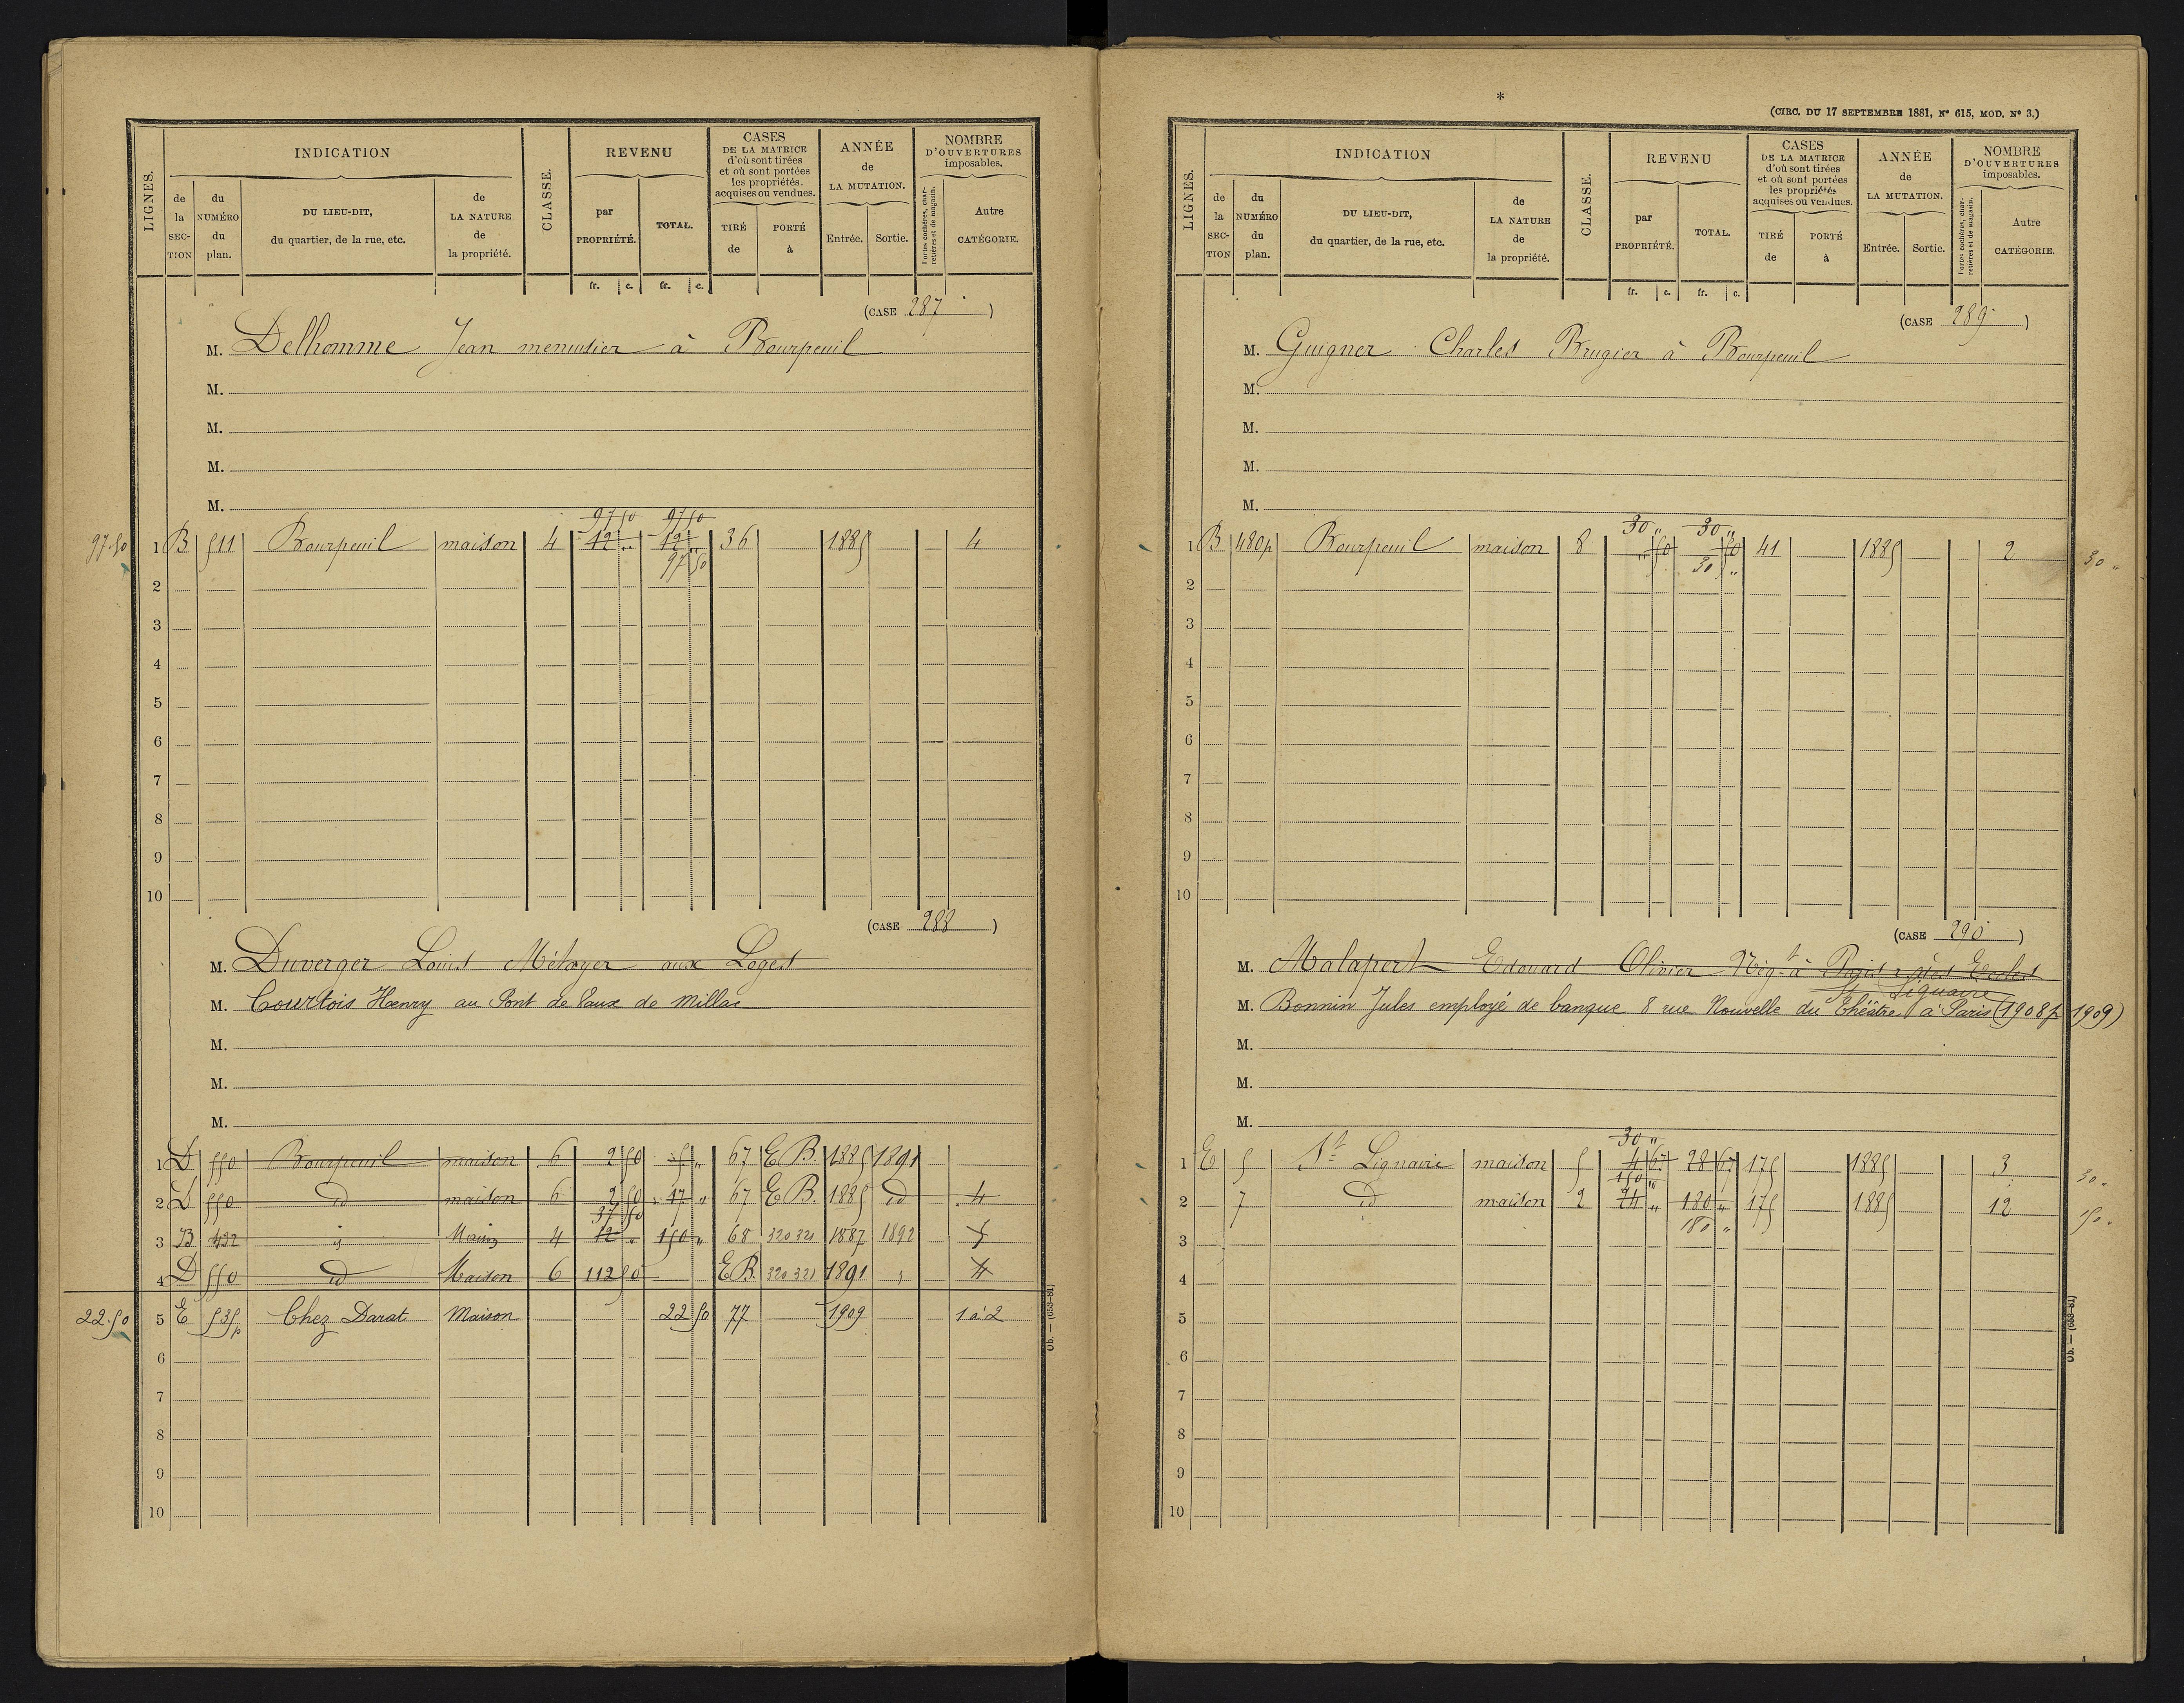 LIGNES. INDICATION CLASSE. REVENU CASES DE LA MATRICE d'où sont tirées et où sont portées les propriétés. acquises ou vendues. ANNÉE de LA MUTATION. NOMBRE D'OUVERTURES imposables.
de la SEC-TION du NUMÉRO du plan. DU LIEU-DIT, du quartier, de la rue, etc. de LA NATURE de la propriété. par PROPRIÉTÉ. TOTAL. TIRÉ de PORTÉ à Entrée. Sortie. Portes cochères, charretières et de magasin. Autre CATÉGORIE.
fr. c. fr. c.
(CASE 287)
M. Delhomme Jean menuisier à Bourpeuil
M.
M.
M.
M.
97 50 97 50
97.50 1 B 511 Bourpeuil maison 4 12 " 12 " 36 1885 4
97 50
2
3
4
5
6
7
8
9
10
(CASE 288)
M. Duverger Louis Métayer aux Loges
M. Courtois Henry au Pont de Vaux de Millac
M.
M.
M.
1 D 550 Bourpeuil maison 6 2 50 5 " 67 E B. 1885 1891
2 D 550 id maison 6 2 50 17 " 67 E B. 1885 id 4
37 50
3 B 432 id Maison 4 12 " 150 " 68 320 321 1887 1892 5
4 D 550 id Maison 6 112 50 E B. 320 321 1891
22.50 5 E 535p Chez Darat Maison 22 50 77 1909 1 à 2
6
7
8
9
10
Ob. — (653-81)
*
(CIRC. DU 17 SEPTEMBRE 1881, N° 615, MOD. N° 3.)
LIGNES. INDICATION CLASSE. REVENU CASES DE LA MATRICE d'où sont tirées et où sont portées les propriétés acquises ou vendues. ANNÉE de LA MUTATION. NOMBRE D'OUVERTURES imposables.
de la SEC-TION du NUMÉRO du plan. DU LIEU-DIT, du quartier, de la rue, etc. de LA NATURE de la propriété. par PROPRIÉTÉ. TOTAL. TIRÉ de PORTÉ à Entrée. Sortie. Portes cochères, charretières et de magasin. Autre CATÉGORIE.
fr. c. fr. c.
(CASE 289)
M. Guigner Charles Brugier à Bourpeuil
M.
M.
M.
M.
30 " 30 "
1 B 480p Bourpeuil maison 8 " 50 " 50 41 1885 2 30 "
30 "
2
3
4
5
6
7
8
9
10
(CASE 290)
M. Malapert Edouard Olivier Nég-t à Paris r. des Ecoles
St Liguaire
M. Bonnin Jules employé de banque 8 rue Nouvelle du Théâtre à Paris (1908 p 1909)
M.
M.
M.
30 "
1 E 5 St Lignaire maison 5 4 67 28 67 175 1885 3 30 "
150 "
2 7 id maison 2 24 " 180 " 175 1885 12 150 "
180 "
3
4
5
6
7
8
9
10
Ob. — (653-81)